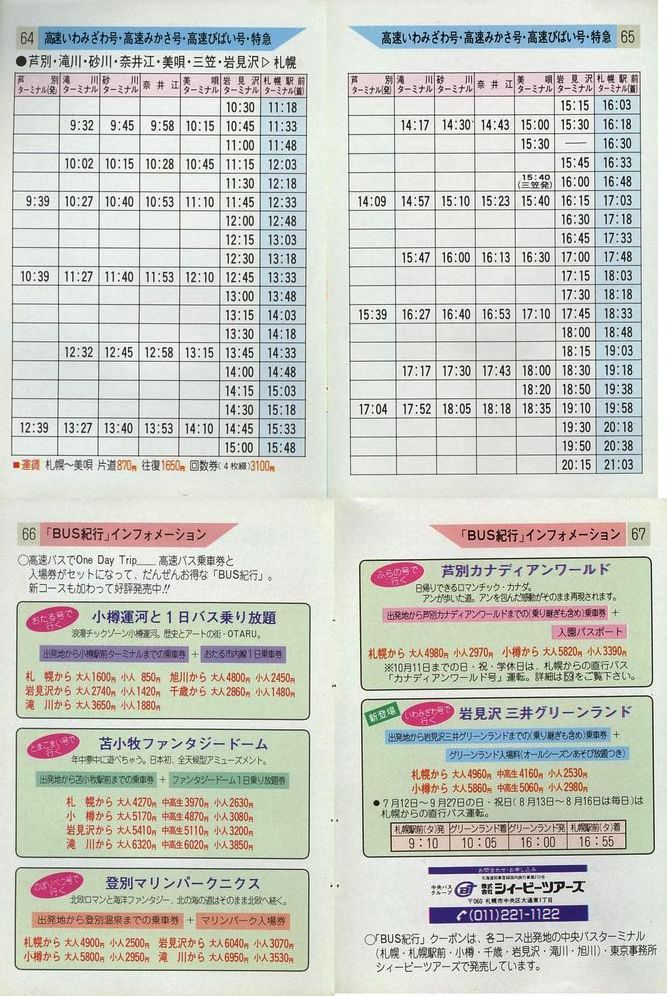 64 高速いわみざわ号・高速みかさ号・高速びばい号・特急
●芦別・滝川・砂川・奈井江・美唄・三笠・岩見沢▷札幌
芦別ターミナル(発) 滝川ターミナル 砂川ターミナル 奈井江 美唄ターミナル 岩見沢ターミナル 札幌駅前ターミナル(着)
10:30 11:18
9:32 9:45 9:58 10:15 10:45 11:33
11:00 11:48
10:02 10:15 10:28 10:45 11:15 12:03
11:30 12:18
9:39 10:27 10:40 10:53 11:10 11:45 12:33
12:00 12:48
12:15 13:03
12:30 13:18
10:39 11:27 11:40 11:53 12:10 12:45 13:33
13:00 13:48
13:15 14:03
13:30 14:18
12:32 12:45 12:58 13:15 13:45 14:33
14:00 14:48
14:15 15:03
14:30 15:18
12:39 13:27 13:40 13:53 14:10 14:45 15:33
15:00 15:48
■運賃 札幌〜美唄 片道870円 往復1650円 回数券(4枚綴)3100円
高速いわみざわ号・高速みかさ号・高速びばい号・特急 65
芦別ターミナル(発) 滝川ターミナル 砂川ターミナル 奈井江 美唄ターミナル 岩見沢ターミナル 札幌駅前ターミナル(着)
15:15 16:03
14:17 14:30 14:43 15:00 15:30 16:18
15:30 ── 16:30
15:45 16:33
15:40(三笠発) 16:00 16:48
14:09 14:57 15:10 15:23 15:40 16:15 17:03
16:30 17:18
16:45 17:33
15:47 16:00 16:13 16:30 17:00 17:48
17:15 18:03
17:30 18:18
15:39 16:27 16:40 16:53 17:10 17:45 18:33
18:00 18:48
18:15 19:03
17:17 17:30 17:43 18:00 18:30 19:18
18:20 18:50 19:38
17:04 17:52 18:05 18:18 18:35 19:10 19:58
19:30 20:18
19:50 20:38
20:15 21:03
66 「BUS紀行」インフォメーション
○高速バスでOne Day Trip___ 高速バス乗車券と
入場券がセットになって、だんぜんお得な「BUS紀行」。
新コースも加わって好評発売中!!
おたる号で行く 小樽運河と1日バス乗り放題
浪漫チックゾーン小樽運河。歴史とアートの街・OTARU。
出発地から小樽駅前ターミナルまでの乗車券 + おたる市内線1日乗車券
札幌から 大人1600円 小人850円 旭川から 大人4800円 小人2450円
岩見沢から 大人2740円 小人1420円 千歳から 大人2860円 小人1480円
滝川から 大人3650円 小人1880円
とまこまい号で行く 苫小牧ファンタジードーム
年中夢中に遊べちゃう。日本初、全天候型アミューズメント。
出発地から苫小牧駅前までの乗車券 + ファンタジードーム1日乗り放題券
札幌から 大人4270円 中高生3970円 小人2630円
小樽から 大人5170円 中高生4870円 小人3080円
岩見沢から 大人5410円 中高生5110円 小人3200円
滝川から 大人6320円 中高生6020円 小人3850円
のぼりべつ号で行く 登別マリンパークニクス
北欧ロマンと海洋ファンタジー、北の海の道はそのまま北欧へ続く。
出発地から登別温泉までの乗車券 + マリンパーク入場券
札幌から 大人4900円 小人2500円 岩見沢から 大人6040円 小人3070円
小樽から 大人5800円 小人2950円 滝川から 大人6950円 小人3530円
「BUS紀行」インフォメーション 67
ふらの号で行く 芦別カナディアンワールド
日帰りできるロマンチック・カナダ。
アンが歩いた道。アンを包んだ感動がそのまま再現されます。
出発地から芦別カナディアンワールドまでの(乗り継ぎも含め)乗車券 +
入園パスポート
札幌から 大人4980円 小人2970円 小樽から 大人5820円 小人3390円
※10月11日までの日・祝・学休日は、札幌からの直行バス
「カナディアンワールド号」運転。詳細は59をご覧下さい。
新登場 いわみざわ号で行く 岩見沢 三井グリーンランド
出発地から岩見沢三井グリーンランドまでの(乗り継ぎも含め)乗車券 +
グリーンランド入場料(オールシーズンあそび放題つき)
札幌から 大人4960円 中高生4160円 小人2530円
小樽から 大人5860円 中高生5060円 小人2980円
●7月12日〜9月27日の日・祝日(8月13日〜8月16日は毎日)は
札幌からの直行バス運転。
札幌駅前(タ)発 グリーンランド着 グリーンランド発 札幌駅前(タ)着
9:10 10:05 16:00 16:55
お問合わせ・お申し込み
中央バスグループ 株式会社シィービーツアーズ
〒060 札幌市中央区大通東1丁目
(011)221-1122
○「BUS紀行」クーポンは、各コース出発地の中央バスターミナル
(札幌・札幌駅前・小樽・千歳・岩見沢・滝川・旭川)・東京事務所
シィービーツアーズで発売しています。